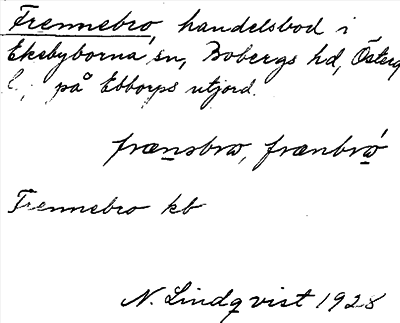 Frennebro, handelsbod i
Ekebyborna sn, Bobergs hd, Österg
l., på Ebborps utjord.
frænsbrω, frænbrω
Frennebro kb
N. Lindqvist 1928